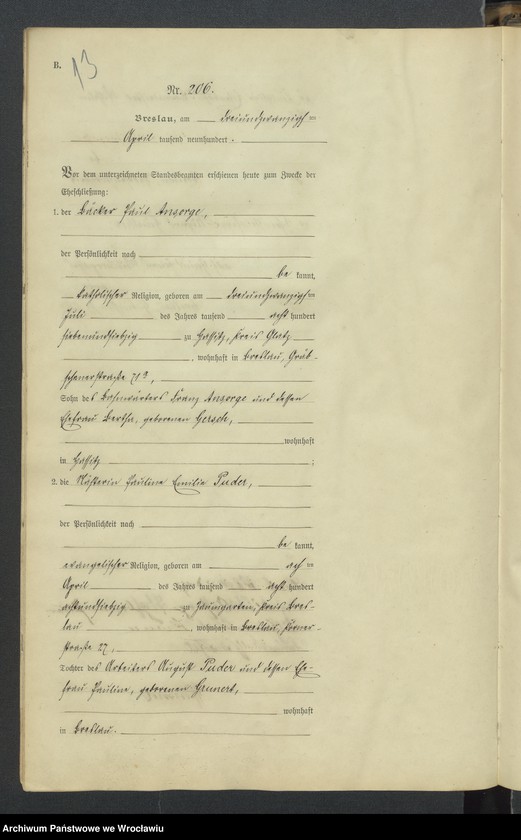 B.
13
Nr. 206.
Breslau, am dreiundzwanzigsten
April tausend neunhundert.
Vor dem unterzeichneten Standesbeamten erschienen heute zum Zwecke der
Eheschließung:
1. der Bäcker Paul Ansorge,
der Persönlichkeit nach
be kannt,
katholischer Religion, geboren am dreiundzwanzigsten
Juli des Jahres tausend acht hundert
siebenundsiebzig zu Hassitz, Kreis Glatz
, wohnhaft in Breslau, Gräb-
schenerstraße 71a,
Sohn des Bahnwärters Franz Ansorge und dessen
Ehefrau Bertha, geborenen Gersch,
wohnhaft
in Hassitz ;
2. die Näherin Pauline Emilie Puder,
der Persönlichkeit nach
be kannt,
evangelischer Religion, geboren am ach ten
April des Jahres tausend acht hundert
achtundsiebzig zu Zaumgarten, Kreis Bres-
lau , wohnhaft in Breslau,
straße 27,
Tochter des Arbeiters August Puder und dessen Ehe-
frau Pauline, geborenen Grunert,
wohnhaft
in Breslau.
Archiwum Państwowe we Wrocławiu